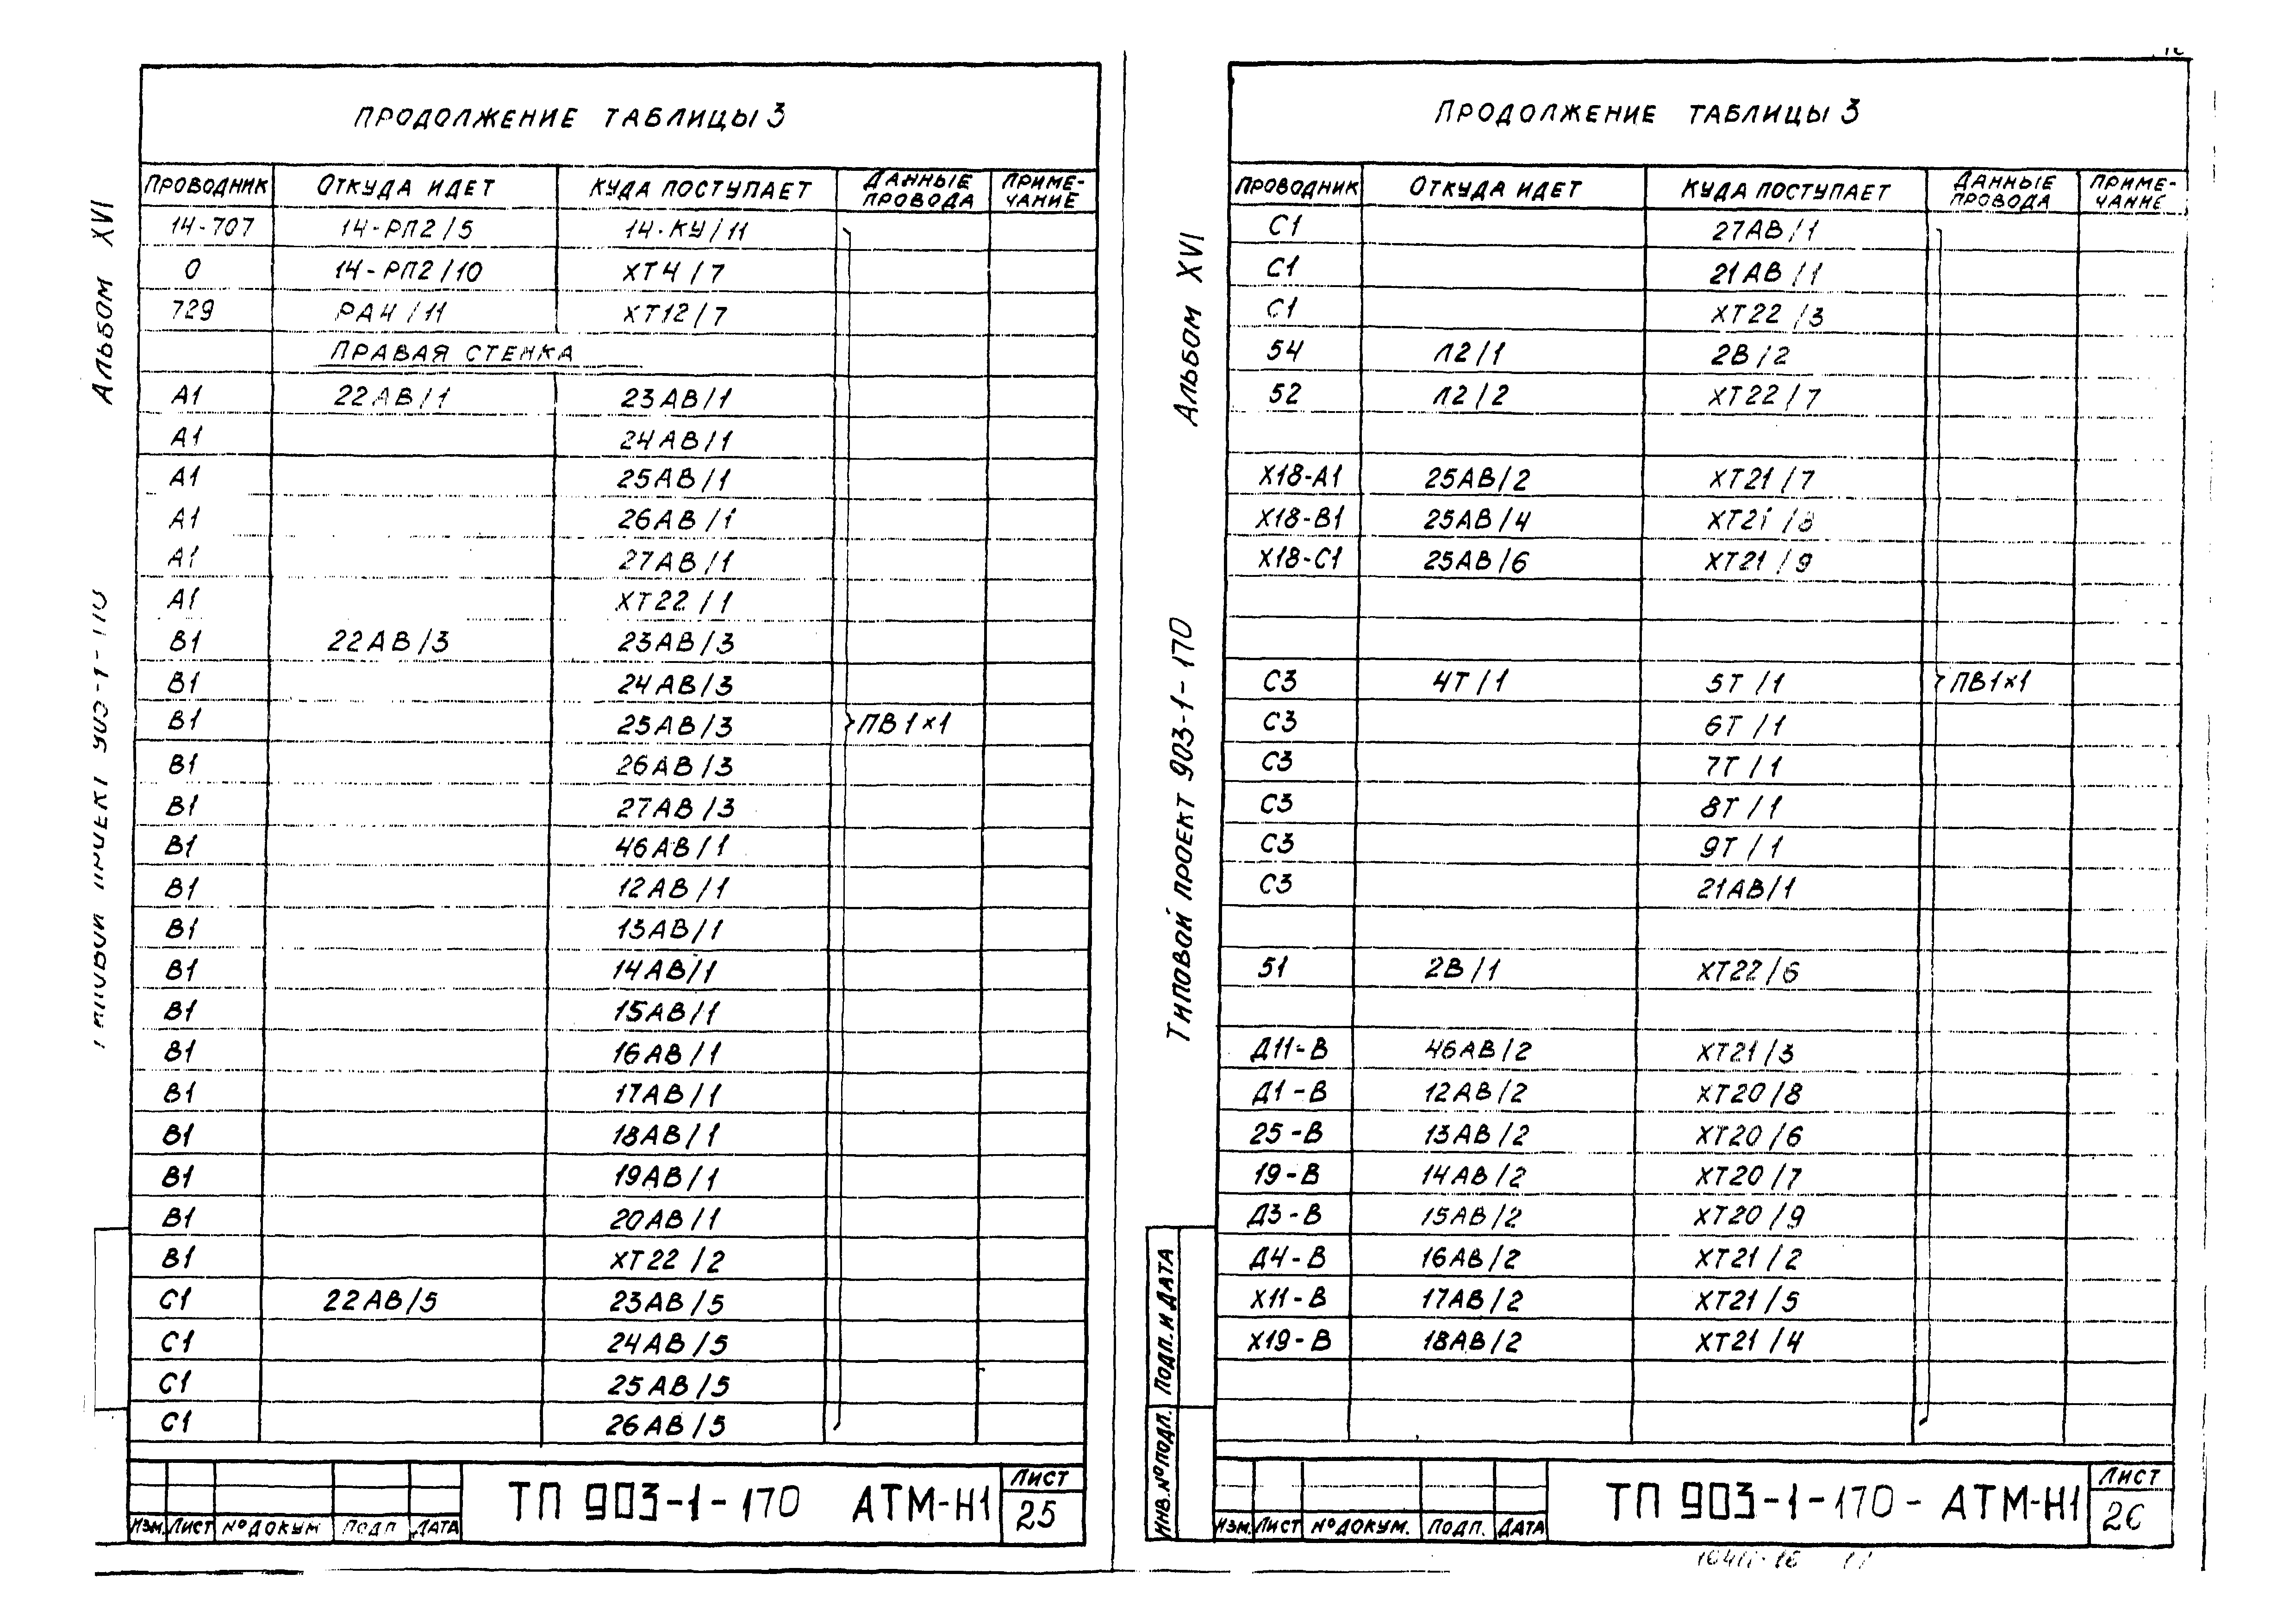 ПРОДОЛЖЕНИЕ ТАБЛИЦЫ 3
ПРОВОДНИК ОТКУДА ИДЕТ КУДА ПОСТУПАЕТ ДАННЫЕ ПРОВОДА ПРИМЕ-ЧАНИЕ
14-707 14-РП2/5 14-КУ/11
0 14-РП2/10 ХТ4/7
729 РА4/11 ХТ12/7
ПРАВАЯ СТЕНКА
А1 22АВ/1 23АВ/1
А1 24АВ/1
А1 25АВ/1
А1 26АВ/1
А1 27АВ/1
А1 ХТ22/1
В1 22АВ/3 23АВ/3
В1 24АВ/3
В1 25АВ/3 ПВ1×1
В1 26АВ/3
В1 27АВ/3
В1 46АВ/1
В1 12АВ/1
В1 13АВ/1
В1 14АВ/1
В1 15АВ/1
В1 16АВ/1
В1 17АВ/1
В1 18АВ/1
В1 19АВ/1
В1 20АВ/1
В1 ХТ22/2
С1 22АВ/5 23АВ/5
С1 24АВ/5
С1 25АВ/5
С1 26АВ/5
ИЗМ. ЛИСТ № ДОКУМ ПОДП ДАТА
ТП 903-1-170 АТМ-Н1
ЛИСТ
25
АЛЬБОМ XVI
ПРОДОЛЖЕНИЕ ТАБЛИЦЫ 3
ПРОВОДНИК ОТКУДА ИДЕТ КУДА ПОСТУПАЕТ ДАННЫЕ ПРОВОДА ПРИМЕ-ЧАНИЕ
С1 27АВ/1
С1 21АВ/1
С1 ХТ22/3
54 Л2/1 2В/2
52 Л2/2 ХТ22/7
Х18-А1 25АВ/2 ХТ21/7
Х18-В1 25АВ/4 ХТ21/8
Х18-С1 25АВ/6 ХТ21/9
С3 4Т/1 5Т/1 ПВ1×1
С3 6Т/1
С3 7Т/1
С3 8Т/1
С3 9Т/1
С3 21АВ/1
51 2В/1 ХТ22/6
Д11-В 46АВ/2 ХТ21/3
Д1-В 12АВ/2 ХТ20/8
25-В 13АВ/2 ХТ20/6
19-В 14АВ/2 ХТ20/7
Д3-В 15АВ/2 ХТ20/9
Д4-В 16АВ/2 ХТ21/2
Х11-В 17АВ/2 ХТ21/5
Х19-В 18АВ/2 ХТ21/4
ИЗМ. ЛИСТ № ДОКУМ. ПОДП. ДАТА
ТП 903-1-170- АТМ-Н1
ЛИСТ
26
АЛЬБОМ XVI
ТИПОВОЙ ПРОЕКТ 903-1-170
ПОДП. И ДАТА
ИНВ.№ПОДЛ.